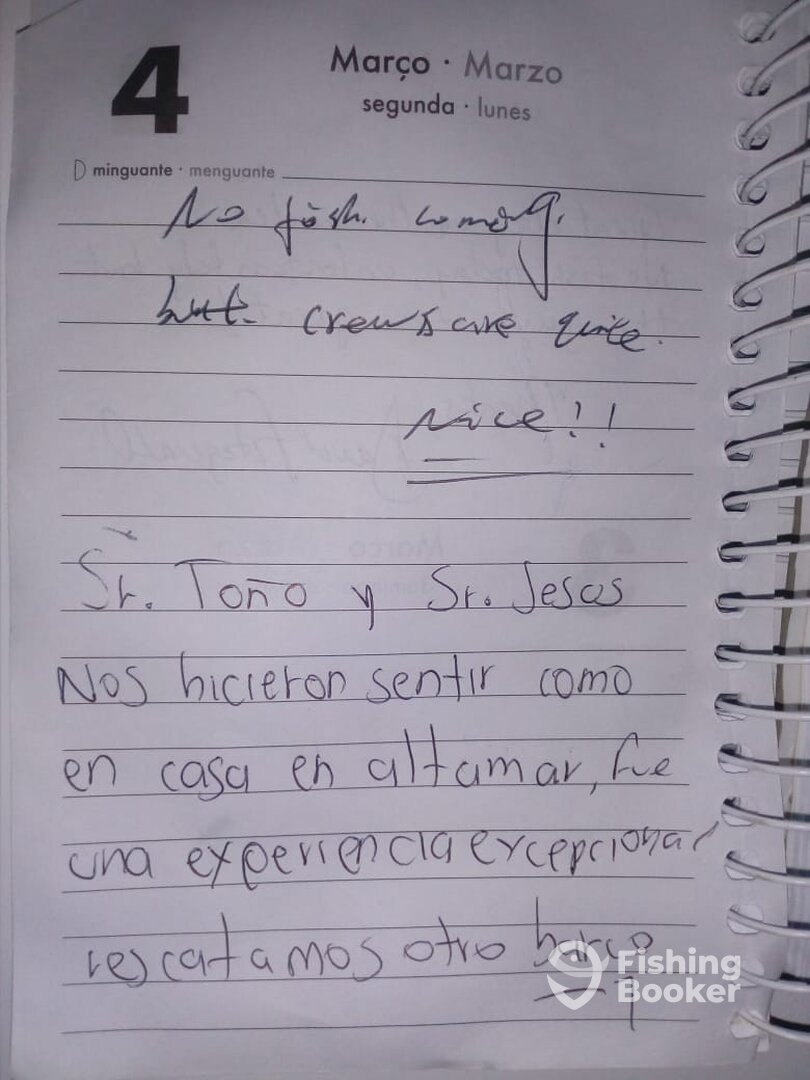 4
Março · Marzo
segunda · lunes
minguante · menguante
No fish. coming.
but. crews are quite.
nice!!
Sr. Toño y Sr. Jesus
Nos hicieron sentir como
en casa en altamar, fue
una experiencia excepcional
rescatamos otro barco
Fishing
Booker